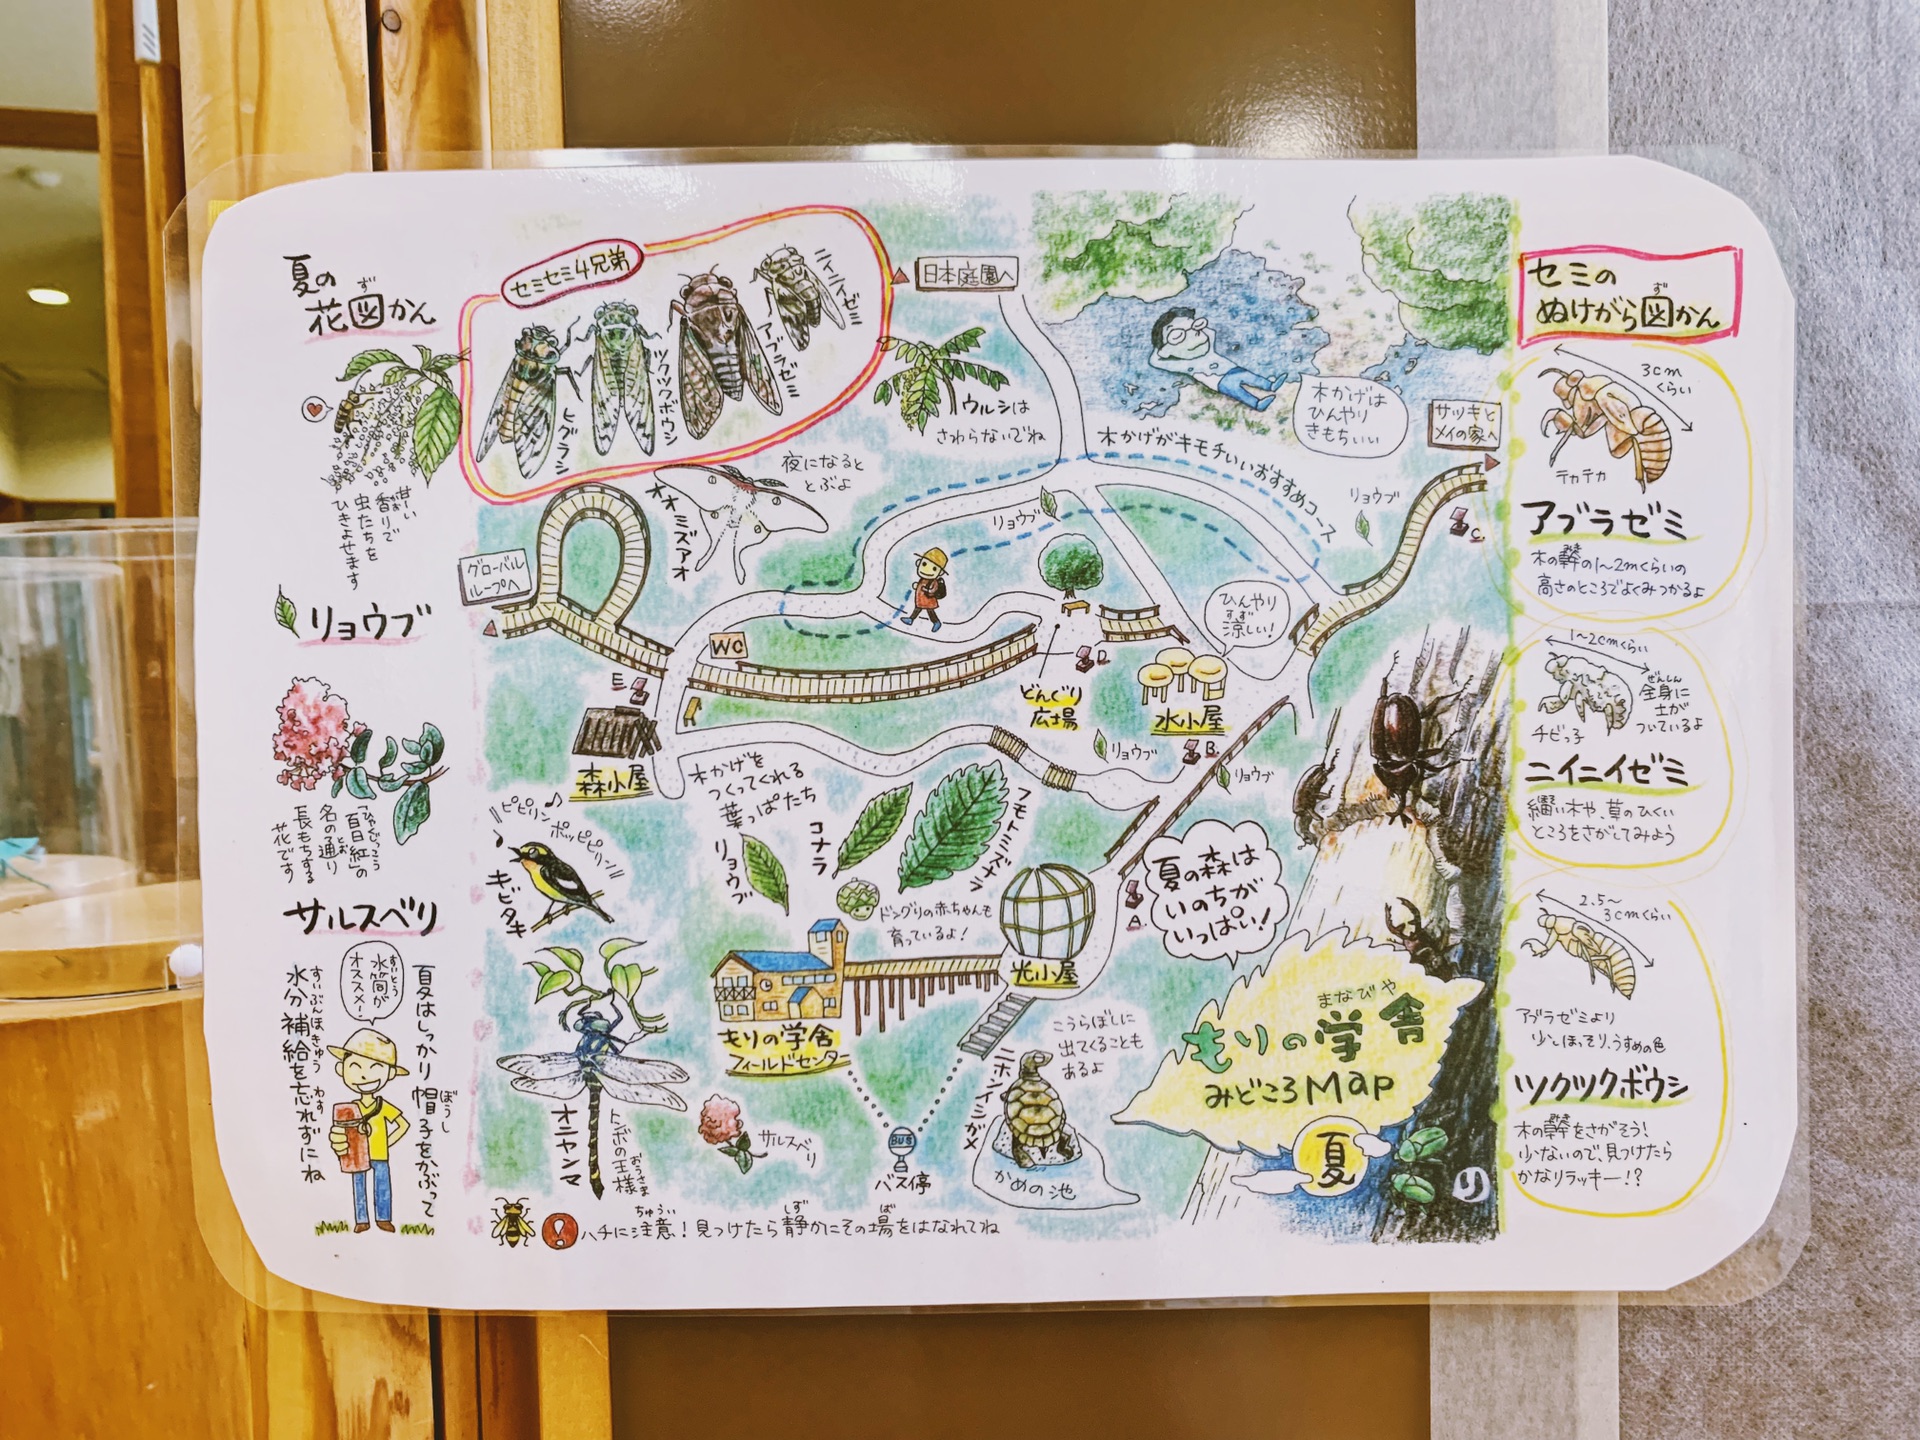 夏の
花図かん
ず
甘ーい
香りで
虫たちを
ひきよせます
リョウブ
「百日紅」の
ひゃくじつこう
名の通り
とお
長もちする
花です
サルスベリ
水筒が
すいとう
オススメ！
夏はしっかり帽子をかぶって
ぼうし
水分補給を忘れずにね
すいぶんほきゅう わす
セミセミ4兄弟
ヒグラシ
ツクツクボウシ
アブラゼミ
ニイニイゼミ
日本庭園へ
ウルシは
さわらないでね
木かげは
ひんやり
きもちいい
サツキと
メイの家へ
木かげがキモチいいおすすめコース
夜になると
とぶよ
オオミズアオ
グローバル
ループへ
リョウブ
リョウブ
C.
ひんやり
涼しい！
すず
WC
E.
D.
どんぐり
広場
水小屋
B.
リョウブ
リョウブ
森小屋
木かげを
つくってくれる
葉っぱたち
リョウブ
コナラ
フモトミズナラ
ドングリの赤ちゃんも
育っているよ！
ピピリンポッピピリン
キビタキ
光小屋
A.
夏の森は
いのちが
いっぱい！
もりの学舎
フィールドセンター
オニヤンマ
トンボの王様
おうさま
サルスベリ
BUS
バス停
こうらぼしに
出てくることも
あるよ
ニホンイシガメ
かめの池
まなびや
もりの学舎
みどころMap
夏
り
ハチに注意！見つけたら静かにその場をはなれてね
ちゅうい しず ば
セミの
ぬけがら図かん
ず
3cm
くらい
テカテカ
アブラゼミ
木の幹の1〜2mくらいの
みき
高さのところでよくみつかるよ
1〜2cmくらい
全身に
ぜんしん
土が
ついているよ
チビっ子
ニイニイゼミ
細い木や、草のひくい
ところをさがしてみよう
2.5〜
3cmくらい
アブラゼミより
少しほっそり、うすめの色
ツクツクボウシ
木の幹をさがそう！
みき
少ないので、見つけたら
かなりラッキー！？